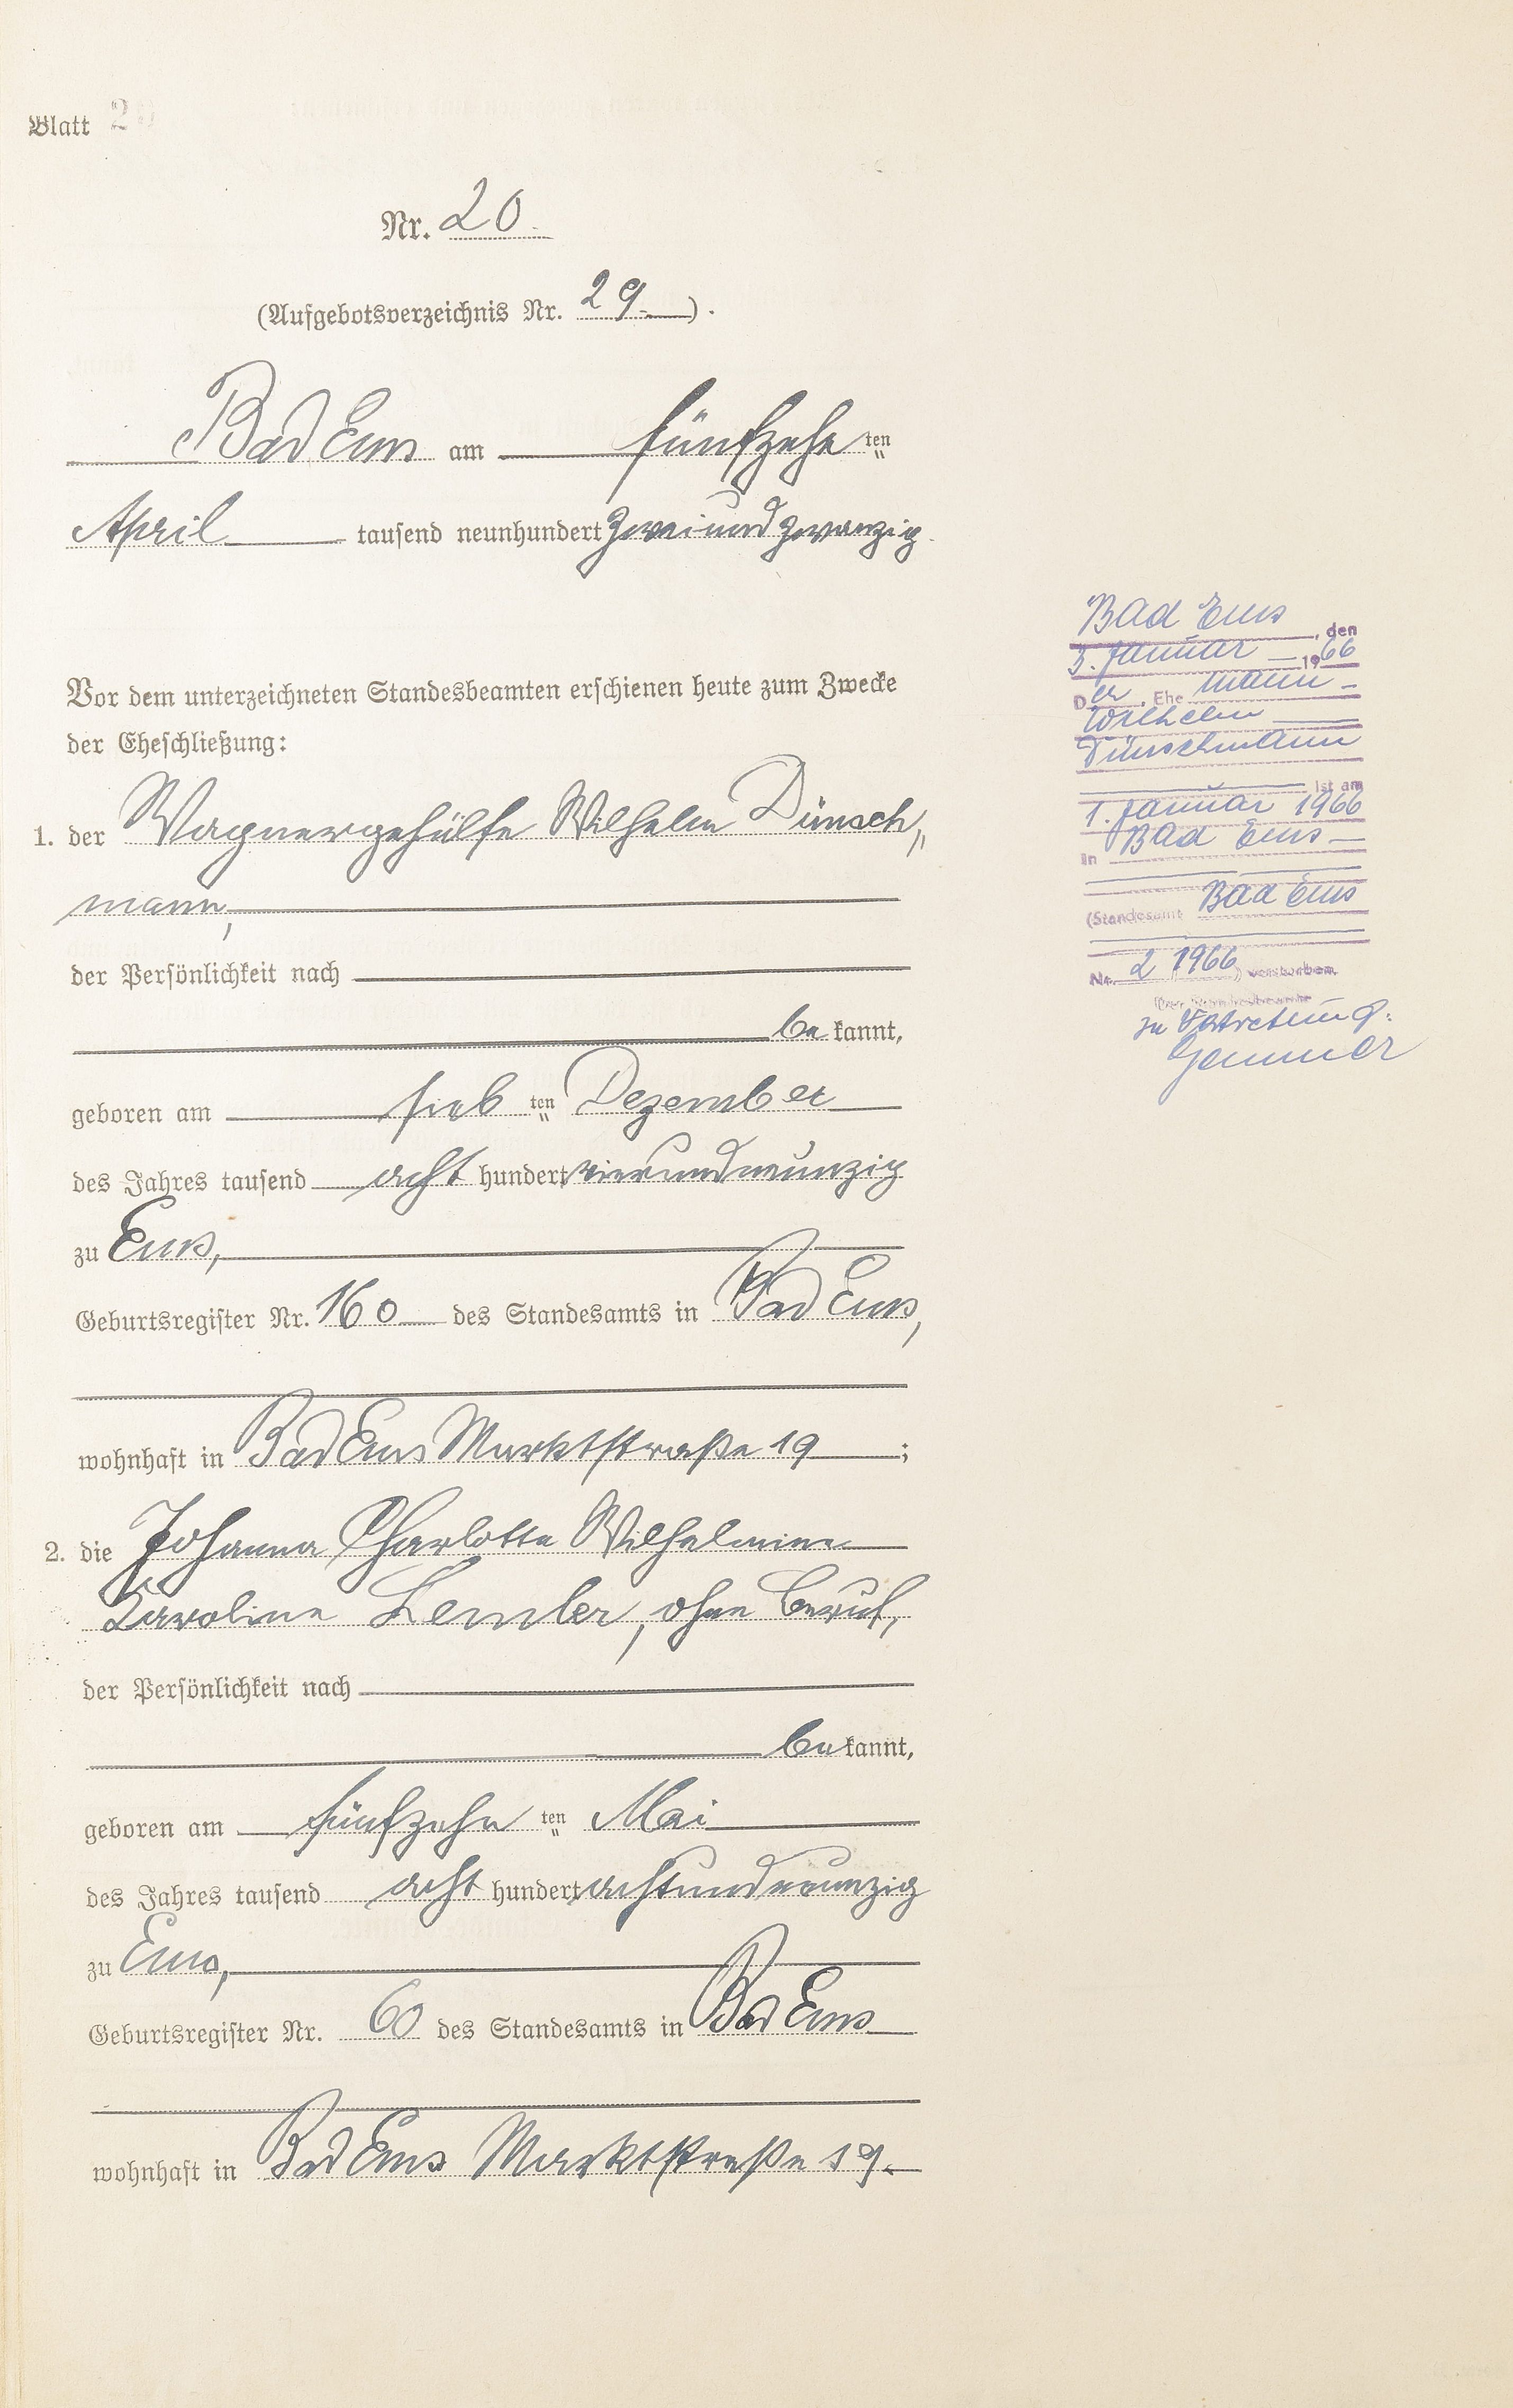 Blatt 20
Nr. 20.
(Aufgebotsverzeichnis Nr. 29).
Bad Ems am fünfzehnten
April tausend neunhundert zweiundzwanzig.
Vor dem unterzeichneten Standesbeamten erschienen heute zum Zwecke
der Eheschließung:
1. der Wagnergehülfe Wilhelm Dünsch„
mann,
der Persönlichkeit nach
bekannt,
geboren am siebten Dezember
des Jahres tausend acht hundert vierundneunzig
zu Ems,
Geburtsregister Nr. 160 des Standesamts in Bad Ems,
wohnhaft in Bad Ems Marktstraße 19;
2. die Johanna Charlotte Wilhelmine
Karoline Lemler, ohne Beruf,
der Persönlichkeit nach
bekannt,
geboren am fünfzehnten Mai
des Jahres tausend acht hundert achtundneunzig
zu Ems,
Geburtsregister Nr. 60 des Standesamts in Bad Ems
wohnhaft in Bad Ems Marktstraße 19.
Bad Ems, den
3. Januar 1966
Der Ehemann
Wilhelm
Dünschmann
ist am
1. Januar 1966
in Bad Ems
(Standesamt Bad Ems
Nr. 2/1966) verstorben.
Der Standesbeamte
In Vertretung: